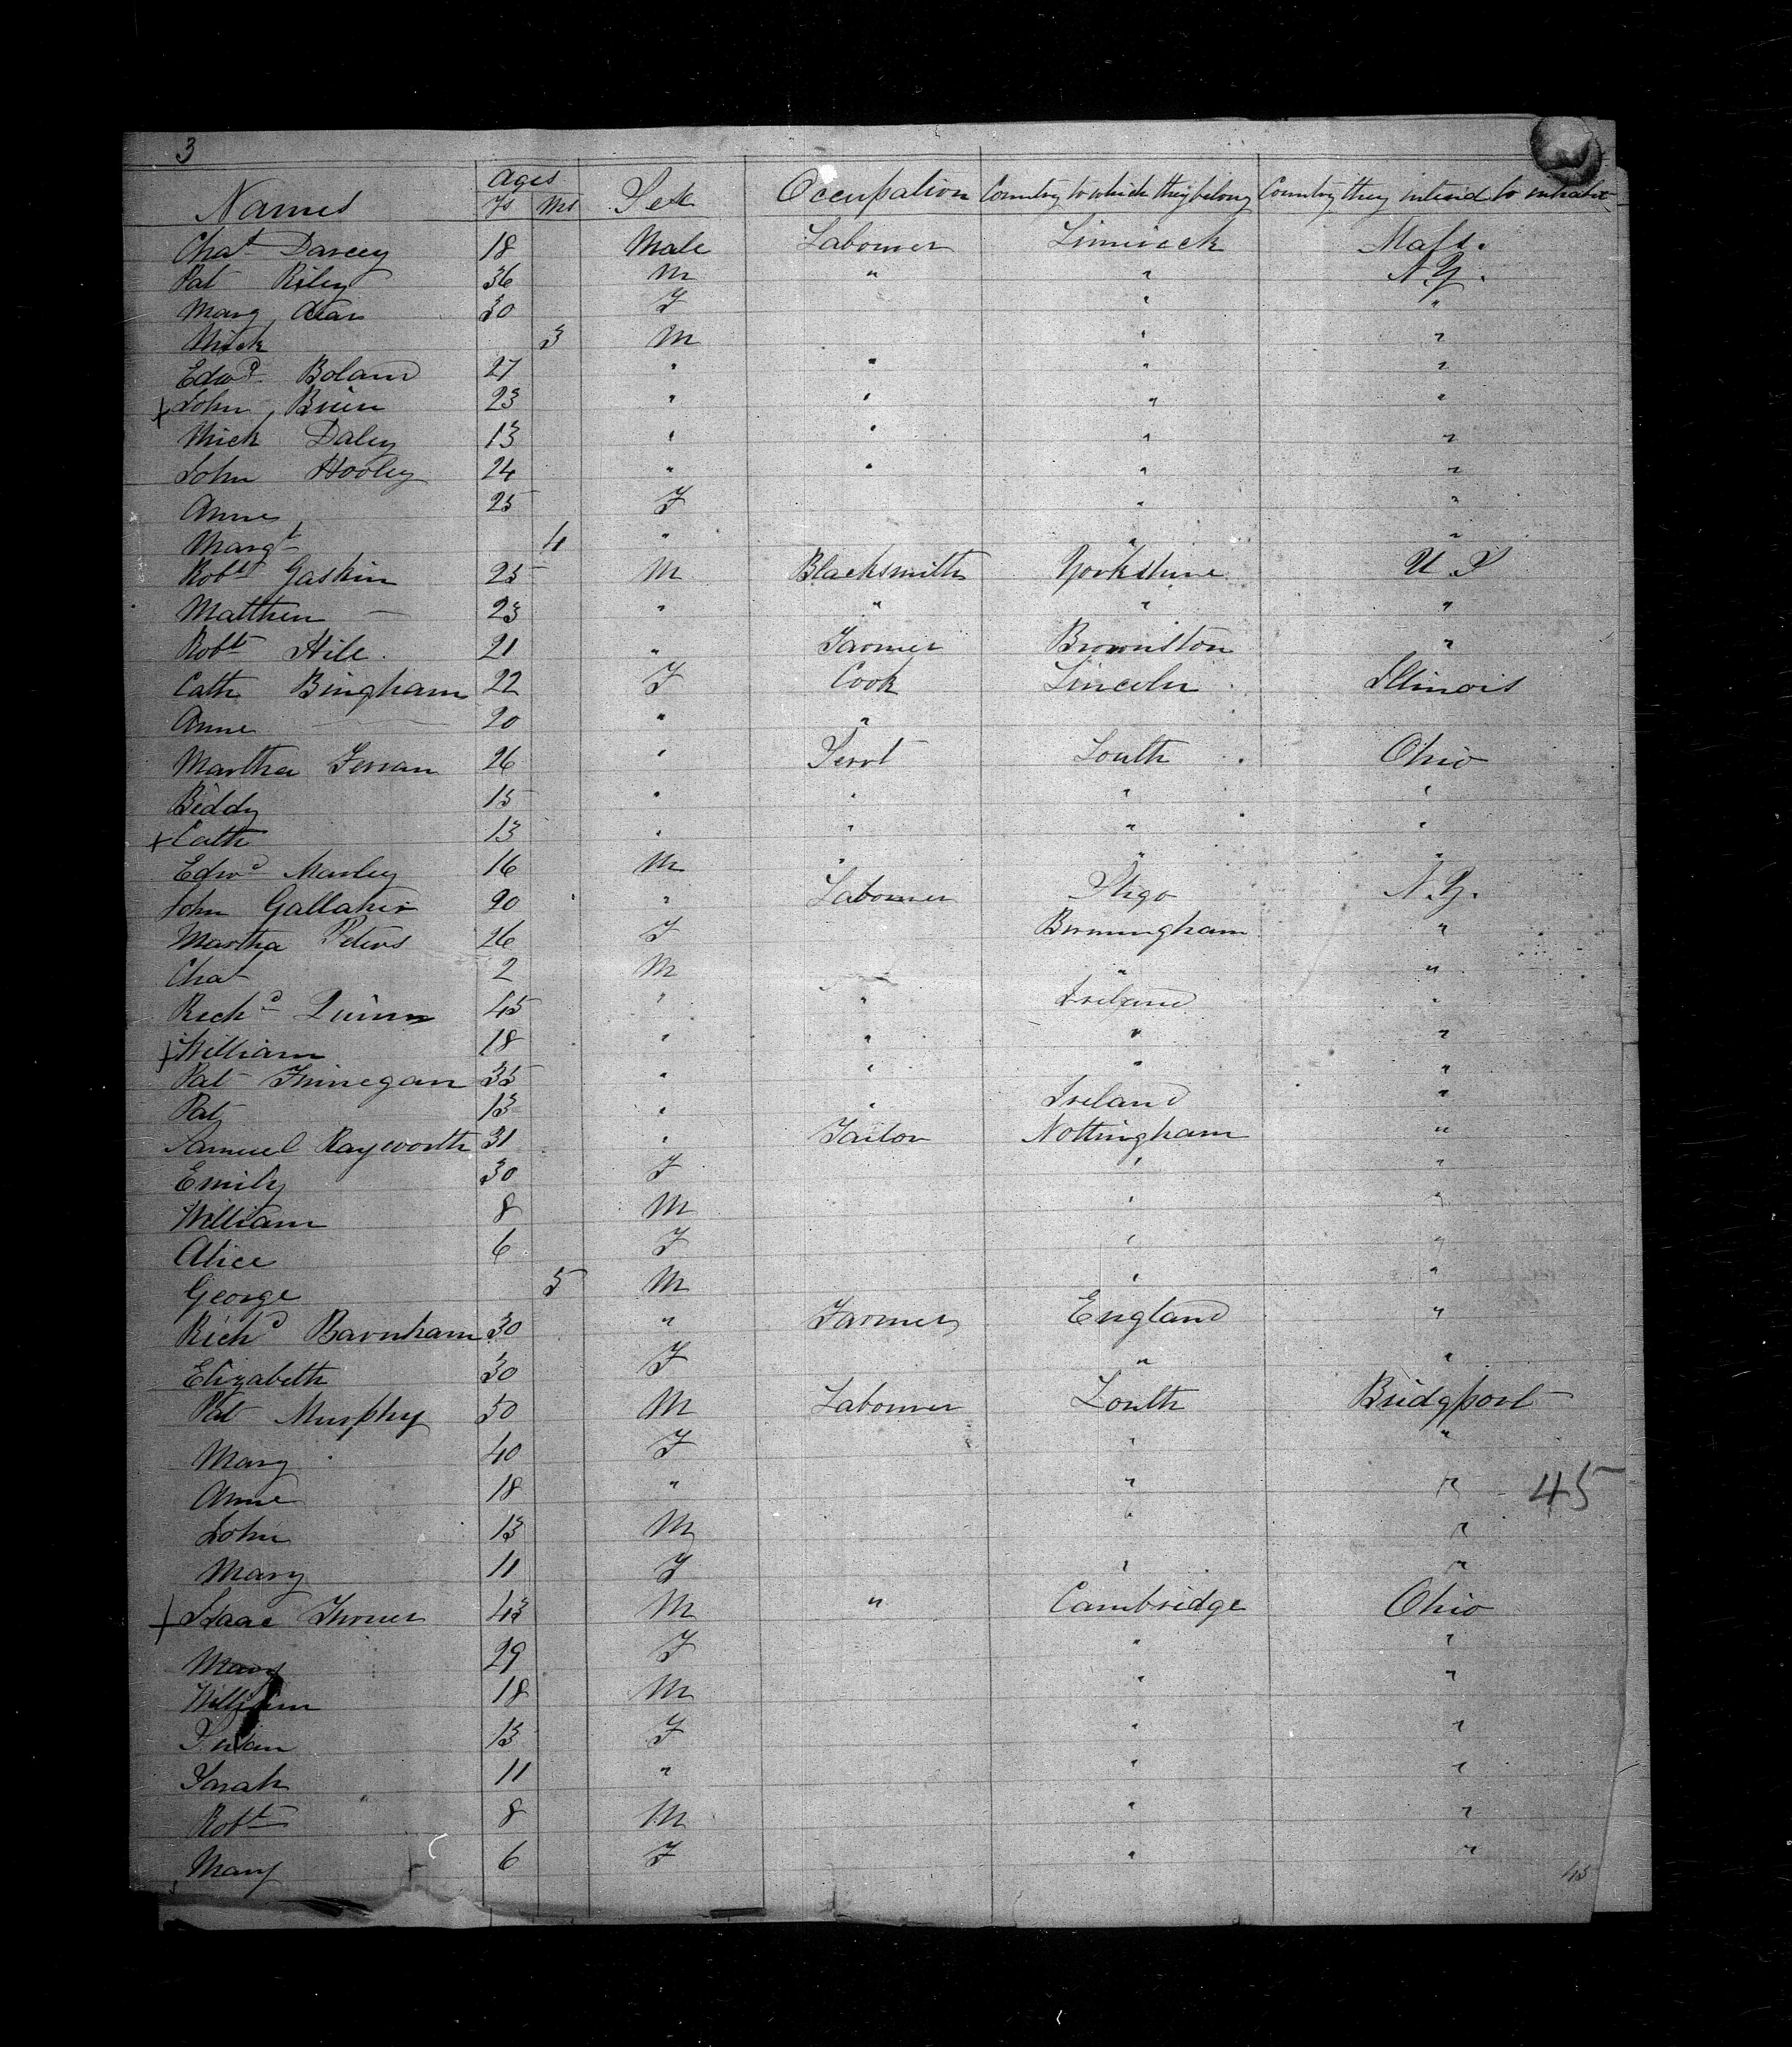 3
Names Ages Ys Ms Sex Occupation Country to which they belong Country they intend to inhabit
Chas Darcey 18 Male Labourer Limerick Mass.
Pat Riley 36 M " " N.Y.
Marg 30 F " "
Mick 3 M " "
Edwd Boland 27 " " " "
+ John Brien 23 " " " "
Mick Daley 13 " " " "
John Hooley 24 " " " "
Anne 25 F " "
Margt 4 " " "
Robt Gaskin 25 M Blacksmith Yorkshire U.S
Matthew — 23 " " " "
Robt Hile 21 " Farmer Brownston "
Cath Bingham 22 F Cook Lincoln Illinois
Anne — 20 " "
Martha Fernan 26 " Servt Louth Ohio
Biddy 15 " " " "
+ Cath 13 " " " "
Edwd Marley 16 M " " "
John Gallaher 20 " Labourer Sligo N.Y.
Martha Peters 26 F Birmingham "
Chas 2 M " "
Richd Quinn 45 " " Ireland "
+ William 18 " " " "
Pat Finnegan 35 " " " "
Pat 13 " " Ireland "
Samuel Rayworth 31 " Tailor Nottingham "
Emily 30 F " "
William 8 M " "
Alice 6 F " "
George 5 M " "
Richd Barnham 30 " Farmer England "
Elizabeth 30 F " "
Pat Murphy 50 M Labourer Louth Bridgport
Mary 40 F " "
Anne 18 " " " 45
John 13 M " "
Mary 11 F " "
+ Isaac Turner 43 M " Cambridge Ohio
Mary 29 F " "
William 18 M " "
Susan 13 F " "
Sarah 11 " " "
Robt 8 M " "
Mary 6 F " "
45